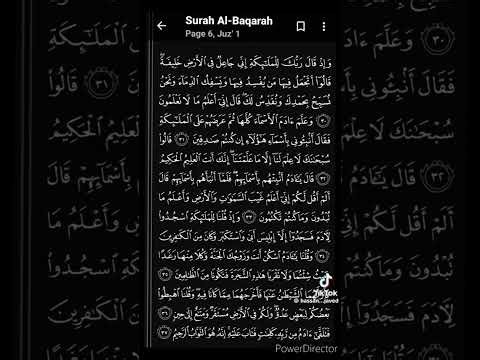 Surah Al-Baqarah
Page 6, Juz' 1
وَإِذْ قَالَ رَبُّكَ لِلْمَلَٰٓئِكَةِ إِنِّي جَاعِلٌ فِي ٱلْأَرْضِ خَلِيفَةً
قَالُوٓا۟ أَتَجْعَلُ فِيهَا مَن يُفْسِدُ فِيهَا وَيَسْفِكُ ٱلدِّمَآءَ وَنَحْنُ
نُسَبِّحُ بِحَمْدِكَ وَنُقَدِّسُ لَكَ قَالَ إِنِّيٓ أَعْلَمُ مَا لَا تَعْلَمُونَ
٣٠ وَعَلَّمَ ءَادَمَ ٱلْأَسْمَآءَ كُلَّهَا ثُمَّ عَرَضَهُمْ عَلَى ٱلْمَلَٰٓئِكَةِ
فَقَالَ أَنۢبِـُٔونِي بِأَسْمَآءِ هَٰٓؤُلَآءِ إِن كُنتُمْ صَٰدِقِينَ ٣١ قَالُوا۟
سُبْحَٰنَكَ لَا عِلْمَ لَنَآ إِلَّا مَا عَلَّمْتَنَآ إِنَّكَ أَنتَ ٱلْعَلِيمُ ٱلْحَكِيمُ
٣٢ قَالَ يَٰٓـَٔادَمُ أَنۢبِئْهُم بِأَسْمَآئِهِمْ فَلَمَّآ أَنۢبَأَهُم بِأَسْمَآئِهِمْ قَالَ
أَلَمْ أَقُل لَّكُمْ إِنِّيٓ أَعْلَمُ غَيْبَ ٱلسَّمَٰوَٰتِ وَٱلْأَرْضِ وَأَعْلَمُ مَا
تُبْدُونَ وَمَا كُنتُمْ تَكْتُمُونَ ٣٣ وَإِذْ قُلْنَا لِلْمَلَٰٓئِكَةِ ٱسْجُدُوا۟
لِءَادَمَ فَسَجَدُوٓا۟ إِلَّآ إِبْلِيسَ أَبَىٰ وَٱسْتَكْبَرَ وَكَانَ مِنَ ٱلْكَٰفِرِينَ
٣٤ وَقُلْنَا يَٰٓـَٔادَمُ ٱسْكُنْ أَنتَ وَزَوْجُكَ ٱلْجَنَّةَ وَكُلَا مِنْهَا رَغَدًا
حَيْثُ شِئْتُمَا وَلَا تَقْرَبَا هَٰذِهِ ٱلشَّجَرَةَ فَتَكُونَا مِنَ ٱلظَّٰلِمِينَ
٣٥ ٱلشَّيْطَٰنُ عَنْهَا فَأَخْرَجَهُمَا مِمَّا كَانَا فِيهِ وَقُلْنَا ٱهْبِطُوا۟
بَعْضُكُمْ لِبَعْضٍ عَدُوٌّ وَلَكُمْ فِي ٱلْأَرْضِ مُسْتَقَرٌّ وَمَتَٰعٌ إِلَىٰ حِينٍ
٣٦ فَتَلَقَّىٰٓ ءَادَمُ مِن رَّبِّهِۦ كَلِمَٰتٍ فَتَابَ عَلَيْهِ إِنَّهُۥ هُوَ ٱلتَّوَّابُ ٱلرَّحِيمُ
TikTok
PowerDirector